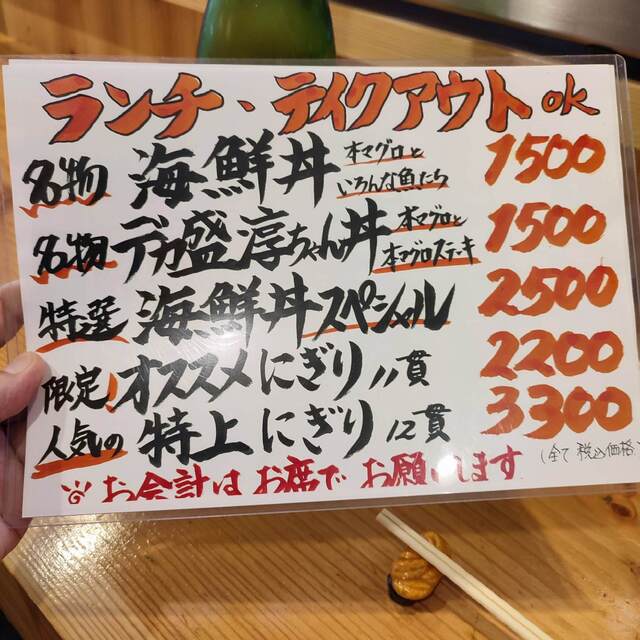 ランチ、テイクアウト ok
名物 海鮮丼 本マグロと いろんな魚たち 1500
名物 デカ盛 淳ちゃん丼 本マグロと 本マグロステーキ 1500
特選 海鮮丼スペシャル 2500
限定、オススメにぎり 11貫 2200
人気の 特上にぎり 12貫 3300
(全て税込価格)
※お会計はお席でお願いします